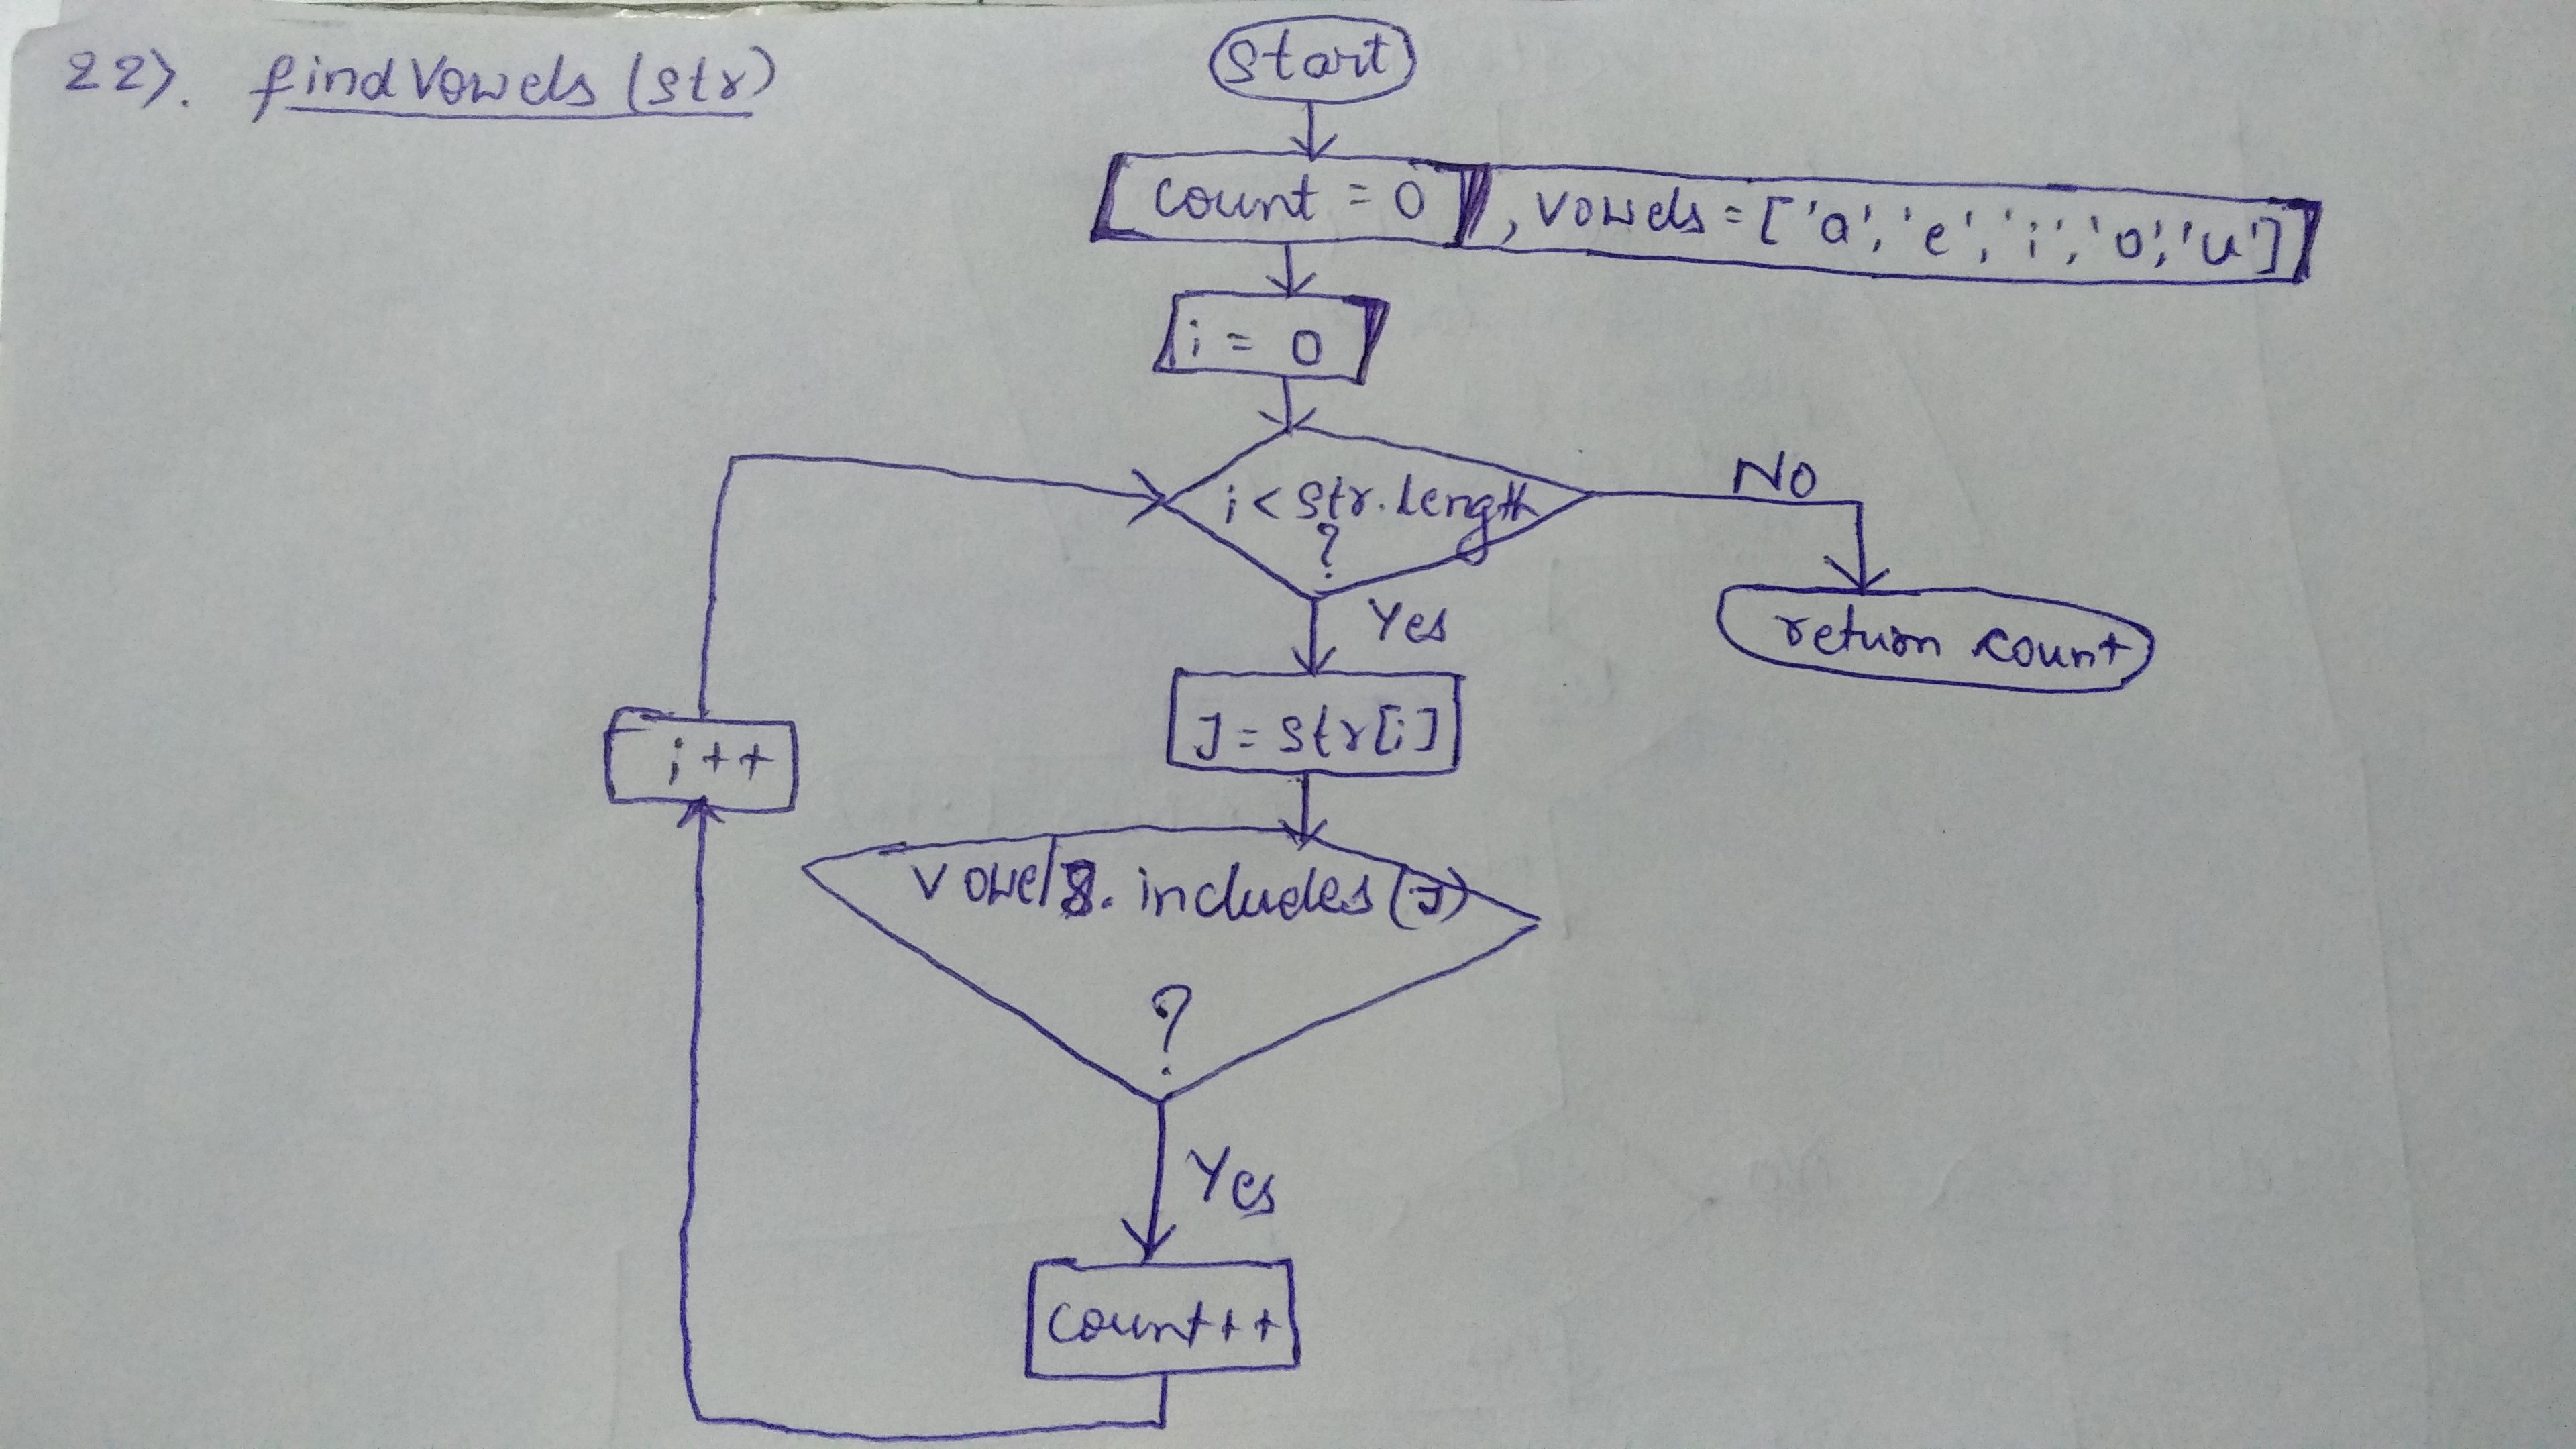 22). findVowels (str)
start
count = 0 , vowels = ['a', 'e', 'i', 'o', 'u']
i = 0
i < str.length
?
NO
Yes
return count
J = str[i]
i++
vowels. includes (J)
?
Yes
count++